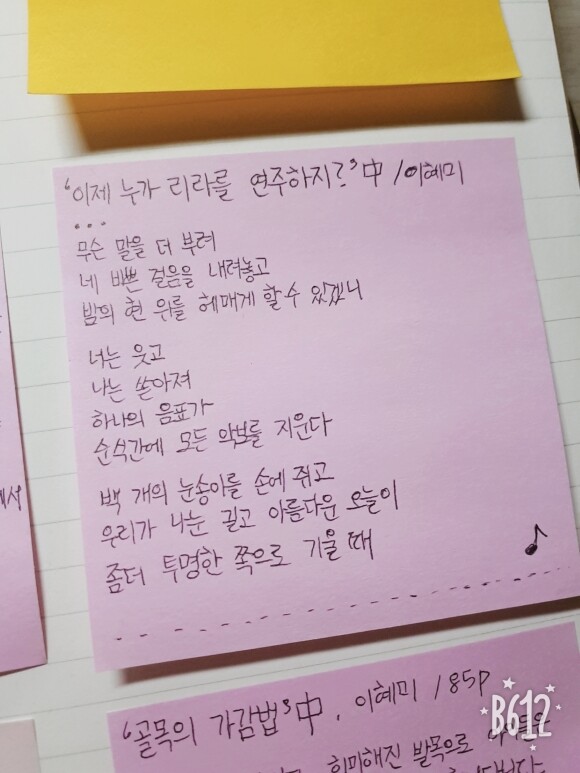 '이제 누가 리라를 연주하지?' 中 /이혜미
...
무슨 말을 더 부려
네 바쁜 걸음을 내려놓고
밤의 현 위를 헤매게 할 수 있겠니
너는 웃고
나는 쏟아져
하나의 음표가
순식간에 모든 악보를 지운다
백 개의 눈송이를 손에 쥐고
우리가 나눈 길고 아름다운 오늘이
좀더 투명한 쪽으로 기울 때
'골목의 가감법' 中, 이혜미 /85P
희미해진 발목으로
B612